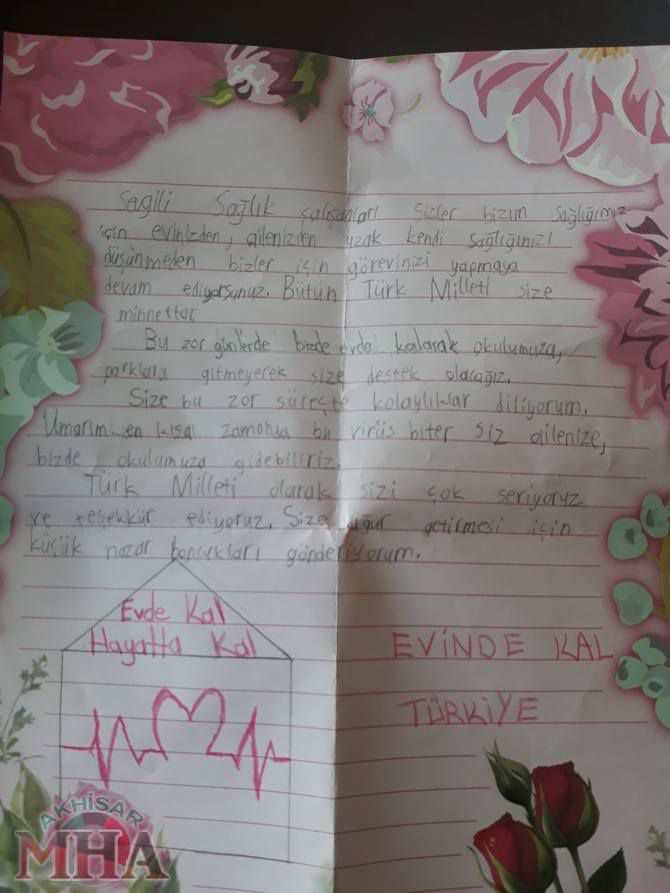 Sevgili Sağlık çalışanları sizler bizim sağlığımız
için evinizden, ailenizden uzak kendi sağlığınızı
düşünmeden bizler için görevinizi yapmaya
devam ediyorsunuz. Bütün Türk Milleti size
minnettar.
Bu zor günlerde bizde evde kalarak okulumuza,
parklara gitmeyerek size destek olacağız.
Size bu zor süreçte kolaylıklar diliyorum.
Umarım en kısa zamanda bu virüs biter siz ailenize,
bizde okulumuza gidebiliriz.
Türk Milleti olarak sizi çok seviyoruz
ve teşekkür ediyoruz. Size uğur getirmesi için
küçük nazar boncukları gönderiyorum.
Evde Kal
Hayatta Kal
EVİNDE KAL
TÜRKİYE
AKHİSAR
MHA